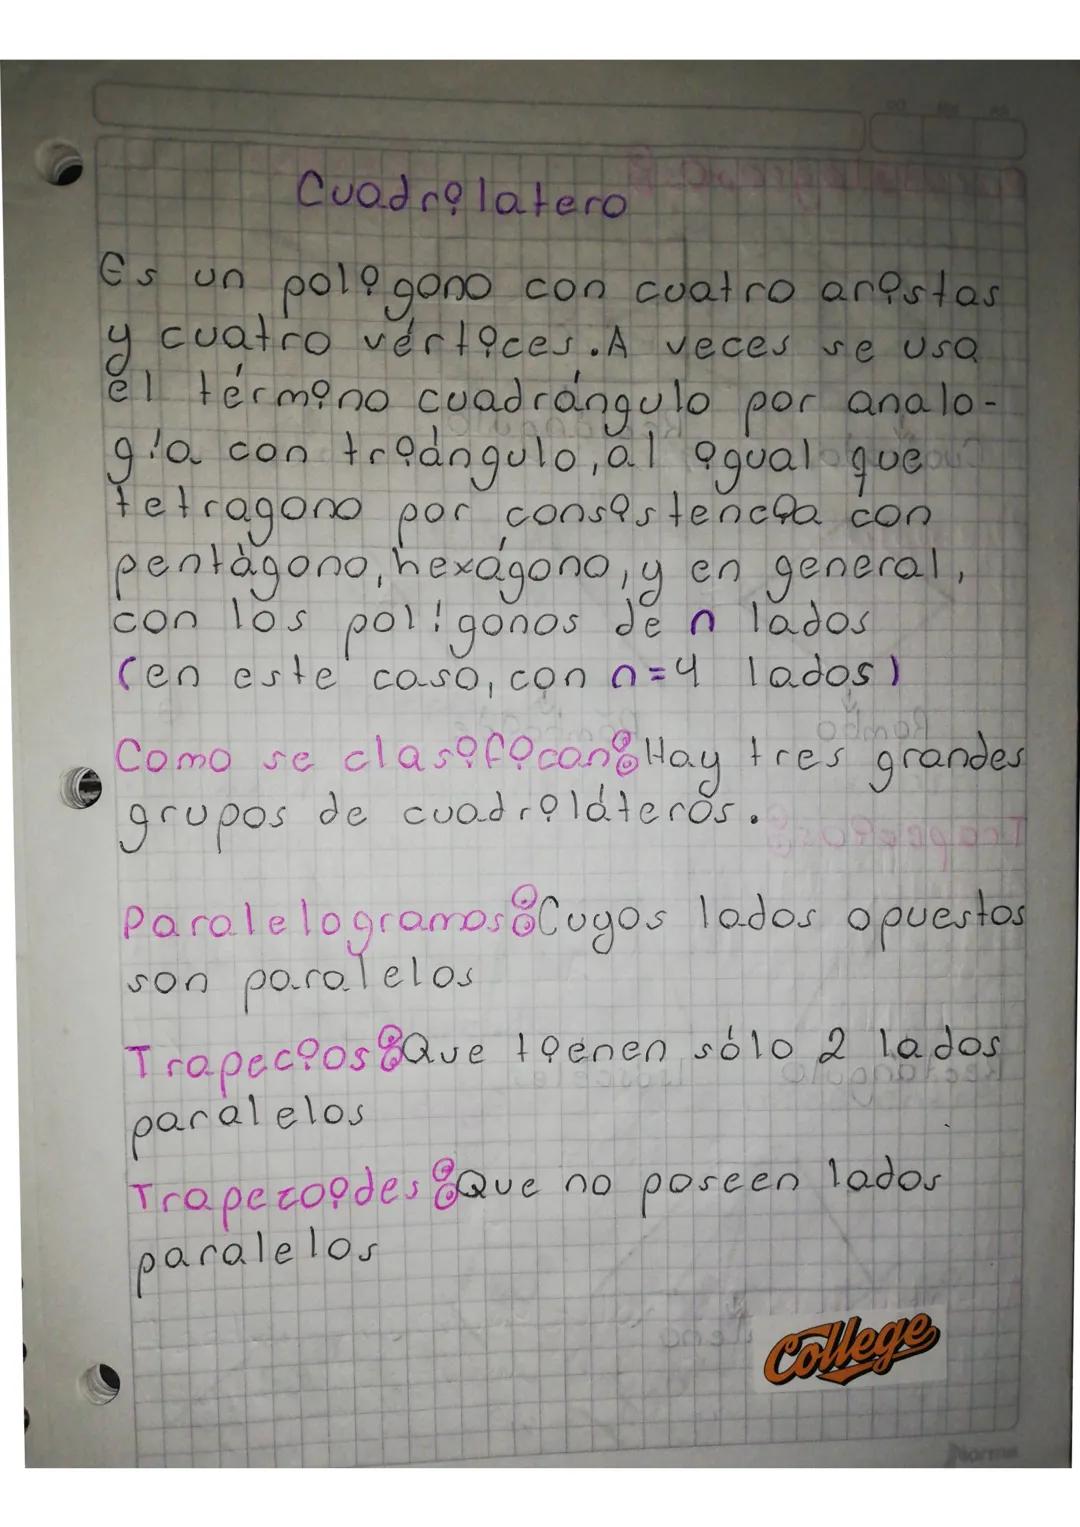 Cuadrilatero
Es un polígono con cuatro aristas
y cuatro vértices. A veces se usa
el término cuadrángulo por analo-
gía con triángulo, al igual que
tetragono por consistencia con
pentágono, hexágono, y en general,
con los polígonos de n lados
(en este caso, con n=4 lados)
Como se clasifican: Hay tres grandes
grupos de cuadriláteros.
Paralelogramos: Cuyos lados opuestos
son paralelos
Trapecios: Que tienen sólo 2 lados
paralelos
Trapezoides: Que no poseen lados
paralelos
College
Norma